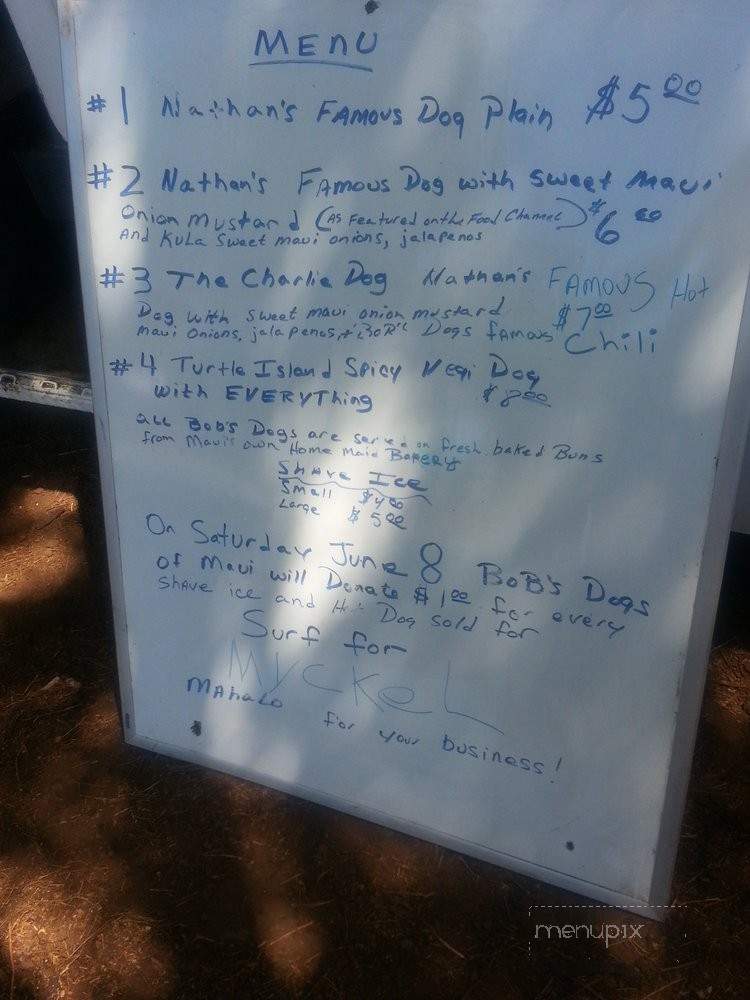 MENU
#1 Nathan's FAMOUS Dog Plain $5 00
#2 Nathan's FAMOUS Dog with Sweet Maui
Onion Mustard (AS Featured on the Food Channel) $6 00
And Kula Sweet maui onions, jalapenos
#3 The Charlie Dog Nathan's FAMOUS Hot
Dog with sweet maui onion mustard $7 00
maui Onions, jalapenos, + BoB'S Dogs famous Chili
#4 Turtle Island Spicy Vegi Dog
with EVERYThing $8 00
all BoB's Dogs are serve on fresh baked Buns
from Maui's own Home Maid BAKERY
Shave Ice
Small $4 00
Large $5 00
On Saturday June 8 BoB's Dogs
of Maui will Donate $1 00 for every
Shave ice and Hot Dog sold for
Surf for
MYCKEL
MAhaLo for your business!
menupix